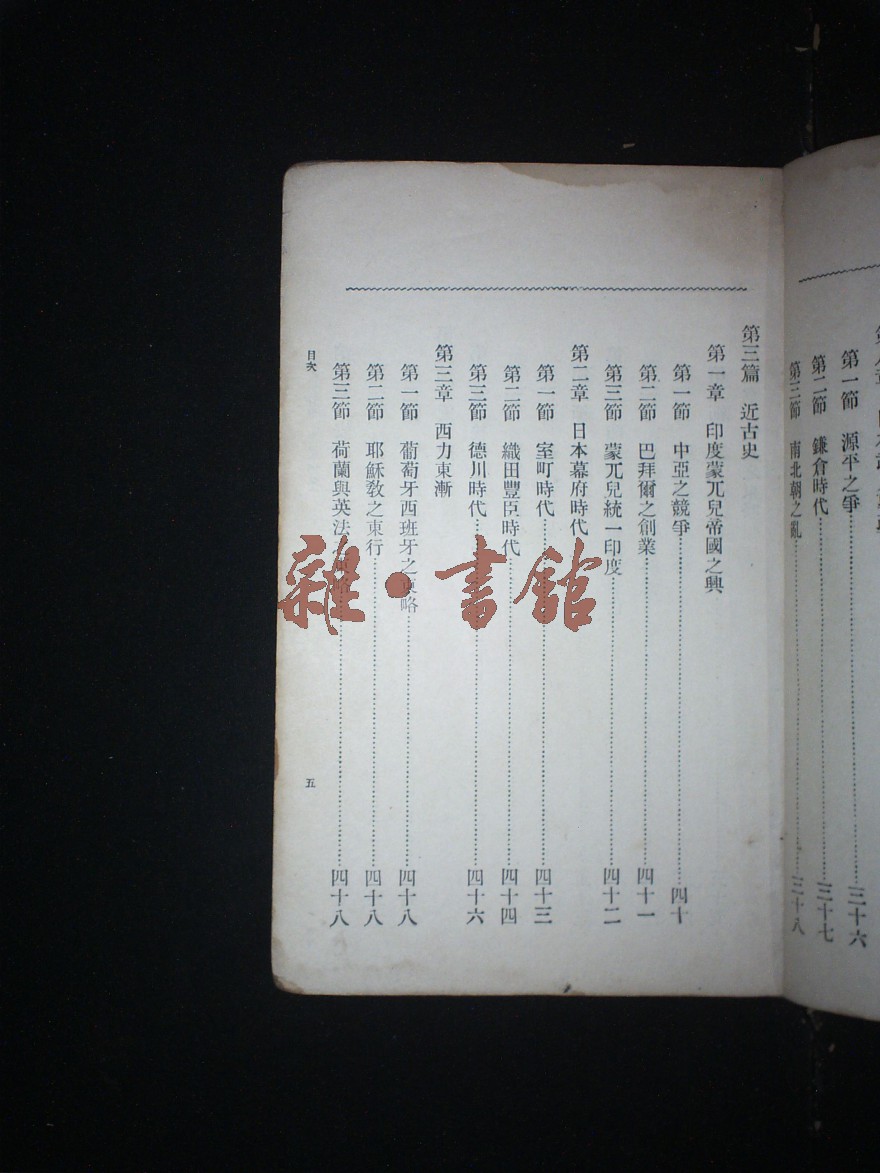 第一節　源平之爭……三十六
第二節　鎌倉時代……三十七
第三節　南北朝之亂……三十八
第三篇　近古史
第一章　印度蒙兀兒帝國之興
第一節　中亞之競爭……四十
第二節　巴拜爾之創業……四十一
第三節　蒙兀兒統一印度……四十二
第二章　日本幕府時代
第一節　室町時代……四十三
第二節　織田豐臣時代……四十四
第三節　德川時代……四十六
第三章　西力東漸
第一節　葡萄牙西班牙之東略……四十八
第二節　耶穌教之東行……四十八
第三節　荷蘭與英法之東略……四十八
目次
五
雜·書館